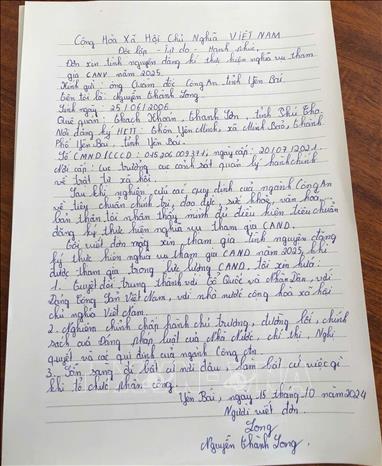 Cộng Hòa Xã Hội Chủ Nghĩa VIỆT NAM
Độc lập - Tự do - Hạnh phúc.
Đơn xin tình nguyện đăng kí thực hiện nghĩa vụ tham
gia CAND năm 2025
Kính gửi: ông Giám đốc Công An tỉnh Yên Bái.
Tên tôi là: Nguyễn Thành Long
Sinh ngày: 25/01/2006
Quê quán: Thạch Khoán, Thanh Sơn, tỉnh Phú Thọ.
Nơi đăng ký HKTT: Thôn Yên Minh, xã Minh Bảo, thành
Phố Yên Bái, tỉnh Yên Bái.
Số CMND/CCCD: 015206009371, ngày cấp: 20/07/2021.
Nơi cấp: cục trưởng cục cảnh sát quản lý hành chính
về trật tự xã hội
Sau khi nghiên cứu các quy định của ngành Công An
về tiêu chuẩn chính trị, đạo đức, sức khoẻ, văn hóa
bản thân tôi nhận thấy mình đủ điều kiện tiêu chuẩn
đăng ký thực hiện nghĩa vụ tham gia CAND.
Tôi viết đơn này xin tham gia tình nguyện đăng
ký thực hiện nghĩa vụ tham gia CAND năm 2025, khi
được tham gia trong lực lượng CAND. Tôi xin hứa:
1. Tuyệt đối trung thành với Tổ Quốc và Nhân Dân, với
Đảng Cộng Sản Việt Nam, với nhà nước cộng hòa xã hội
chủ nghĩa Việt Nam.
2. Nghiêm chỉnh chấp hành chủ trương, đường lối, chính
sách của Đảng pháp luật của Nhà Nước, chỉ thị, Nghị
quyết và các qui định của ngành Công An
3. Sẵn sàng đi bất cứ nơi đâu, làm bất cứ việc gì
khi tổ chức phân công.
Yên Bái, ngày 15 tháng 10 năm 2024
Người viết đơn.
Long
Nguyễn Thành Long.